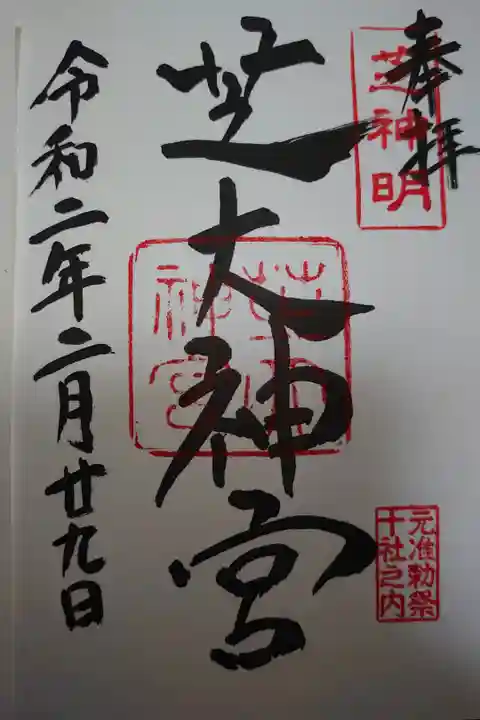 奉拝
芝神明
芝大神宮
芝大
神宮
元准勅祭
十社之内
令和二年二月廿九日